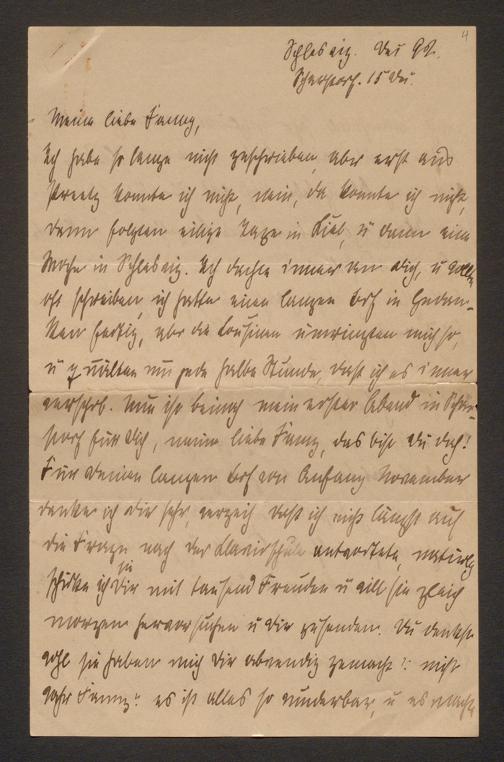 4
Schleswig. Dec 92.
15 Dec.
Meine liebe Fanny,
Ich habe so lange nicht geschrieben, aber erst aus
Preetz konnte ich nicht, nein, da konnte ich nicht,
dann folgten einige Tage in Kiel, u dann eine
Woche in Schleswig. Ich dachte immer an dich, u wollte
oft schreiben, ich hatte einen langen Brf in Gedan-
ken fertig, aber die Cousinen umringten mich so,
u quälten um jede halbe Stunde, daß ich es immer
verschob. Nun ist beinah mein erster Abend in
für dich, meine liebe Fanny, das bist du doch!
Für deinen langen Brf von Anfang November
danke ich dir sehr, verzeih daß ich nicht längst auf
die Frage nach der Clavierschule antwortete, natürlich
schicke ich sie dir mit tausend Freuden u will sie gleich
morgen hervorsuchen u dir zusenden. Du denkst
wohl sie haben mich dir abwendig gemacht? nicht
wahr Fanny? es ist alles so wunderbar, u es macht